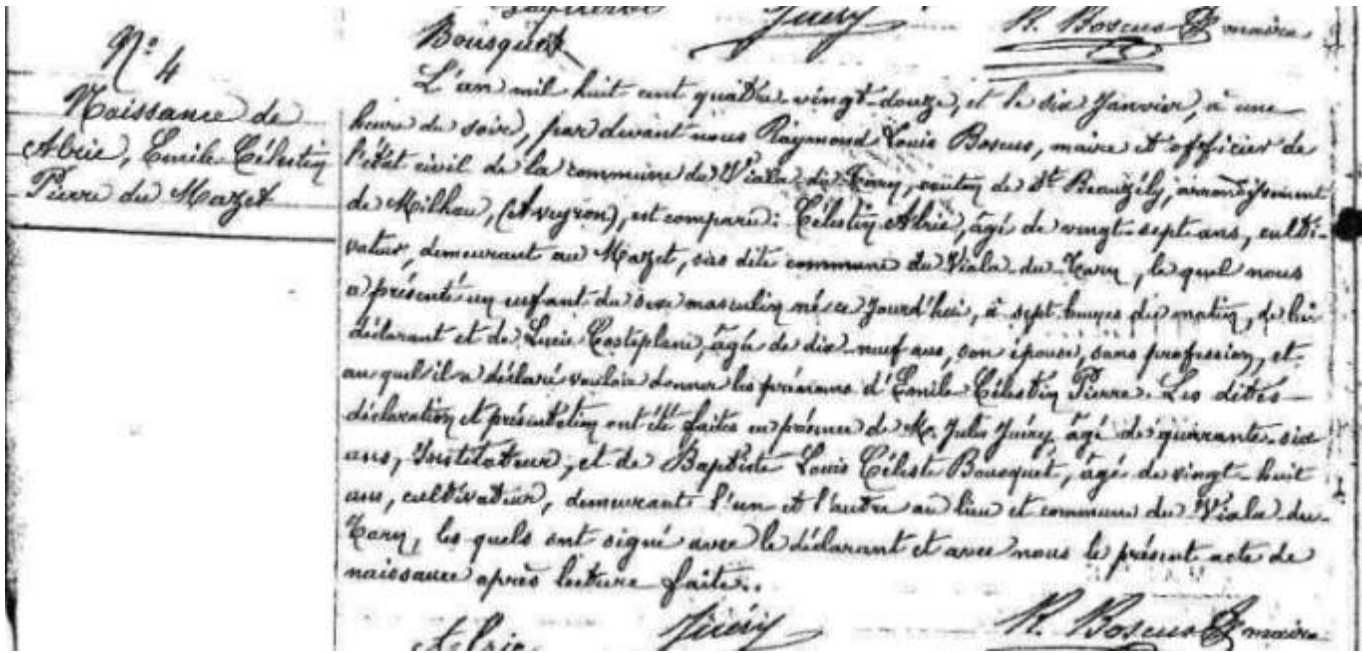 Bousquet
Juéry
R. Boscus maire
N° 4
Naissance de
Alric, Emile Célestin
Pierre du Mazet
L'an mil huit cent quatre-vingt-douze, et le six Janvier, à une
heure du soir, par devant nous Raymond Louis Boscus, maire et officier de
l'état civil de la commune du Viala-du-Tarn, canton de St Beauzély, arrondissement
de Milhau, (Aveyron), est comparu: Célestin Alric, âgé de vingt-sept ans, culti-
vateur, demeurant au Mazet, sis dite commune du Viala-du-Tarn, le quel nous
a présenté un enfant du sexe masculin né ce Jourd'hui, à sept heures du matin, de lui
déclarant et de Lucie Costeplane, âgée de dix-neuf ans, son épouse, sans profession, et
au quel il a déclaré vouloir donner les prénoms d'Emile Célestin Pierre. Les dites
déclaration et présentation ont été faites en présence de M. Jules Juéry âgé de quarante-six
ans, Instituteur, et de Baptiste Louis Céleste Bousquet, âgé de vingt-huit
ans, cultivateur, demeurant l'un et l'autre au lieu et commune du Viala-du-
Tarn, les quels ont signé avec le déclarant et avec nous le présent acte de
naissance après lecture faite..
Alric
Juéry
R. Boscus maire